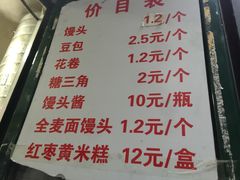 价目表
馒头 1.2/个
豆包 2.5元/个
花卷 1.2元/个
糖三角 2元/个
馒头酱 10元/瓶
全麦面馒头 1.2元/个
红枣黄米糕 12元/盒